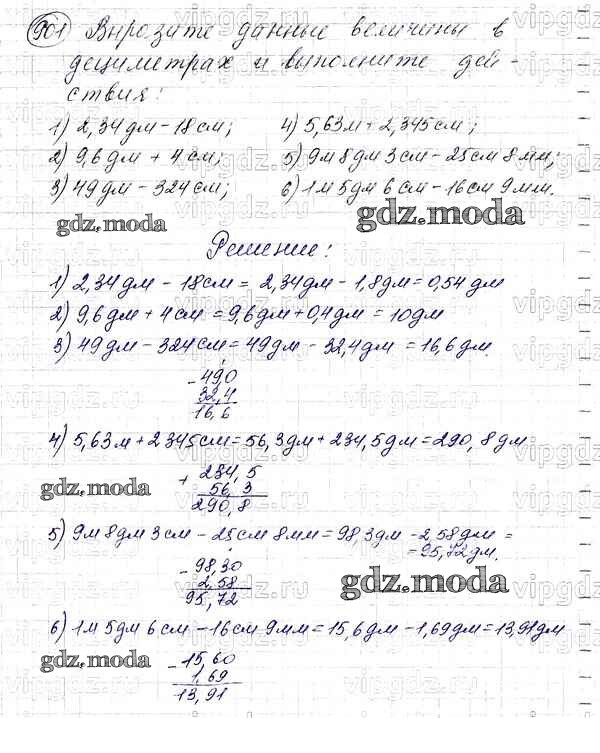 901 Вырозите данные величены в
дециметрах и выполните дей-
ствия:
1) 2,34 дм - 18 см; 4) 5,63 м + 2,345 см;
2) 9,6 дм + 4 см; 5) 9 м 8 дм 3 см - 25 см 8 мм;
3) 49 дм - 324 см; 6) 1 м 5 дм 6 см - 16 см 9 мм.
gdz.moda gdz.moda
Решение:
1) 2,34 дм - 18 см = 2,34 дм - 1,8 дм = 0,54 дм
2) 9,6 дм + 4 см = 9,6 дм + 0,4 дм = 10 дм
3) 49 дм - 324 см = 49 дм - 32,4 дм = 16,6 дм.
- 49,0
32,4
16,6
4) 5,63 м + 2345 см = 56,3 дм + 234,5 дм = 290,8 дм
+ 234,5
56,3
290,8
gdz.moda
5) 9 м 8 дм 3 см - 25 см 8 мм = 98,3 дм - 2,58 дм =
= 95,72 дм.
- 98,30
2,58
95,72
gdz.moda
6) 1 м 5 дм 6 см - 16 см 9 мм = 15,6 дм - 1,69 дм = 13,91 дм
gdz.moda
- 15,60
1,69
13,91